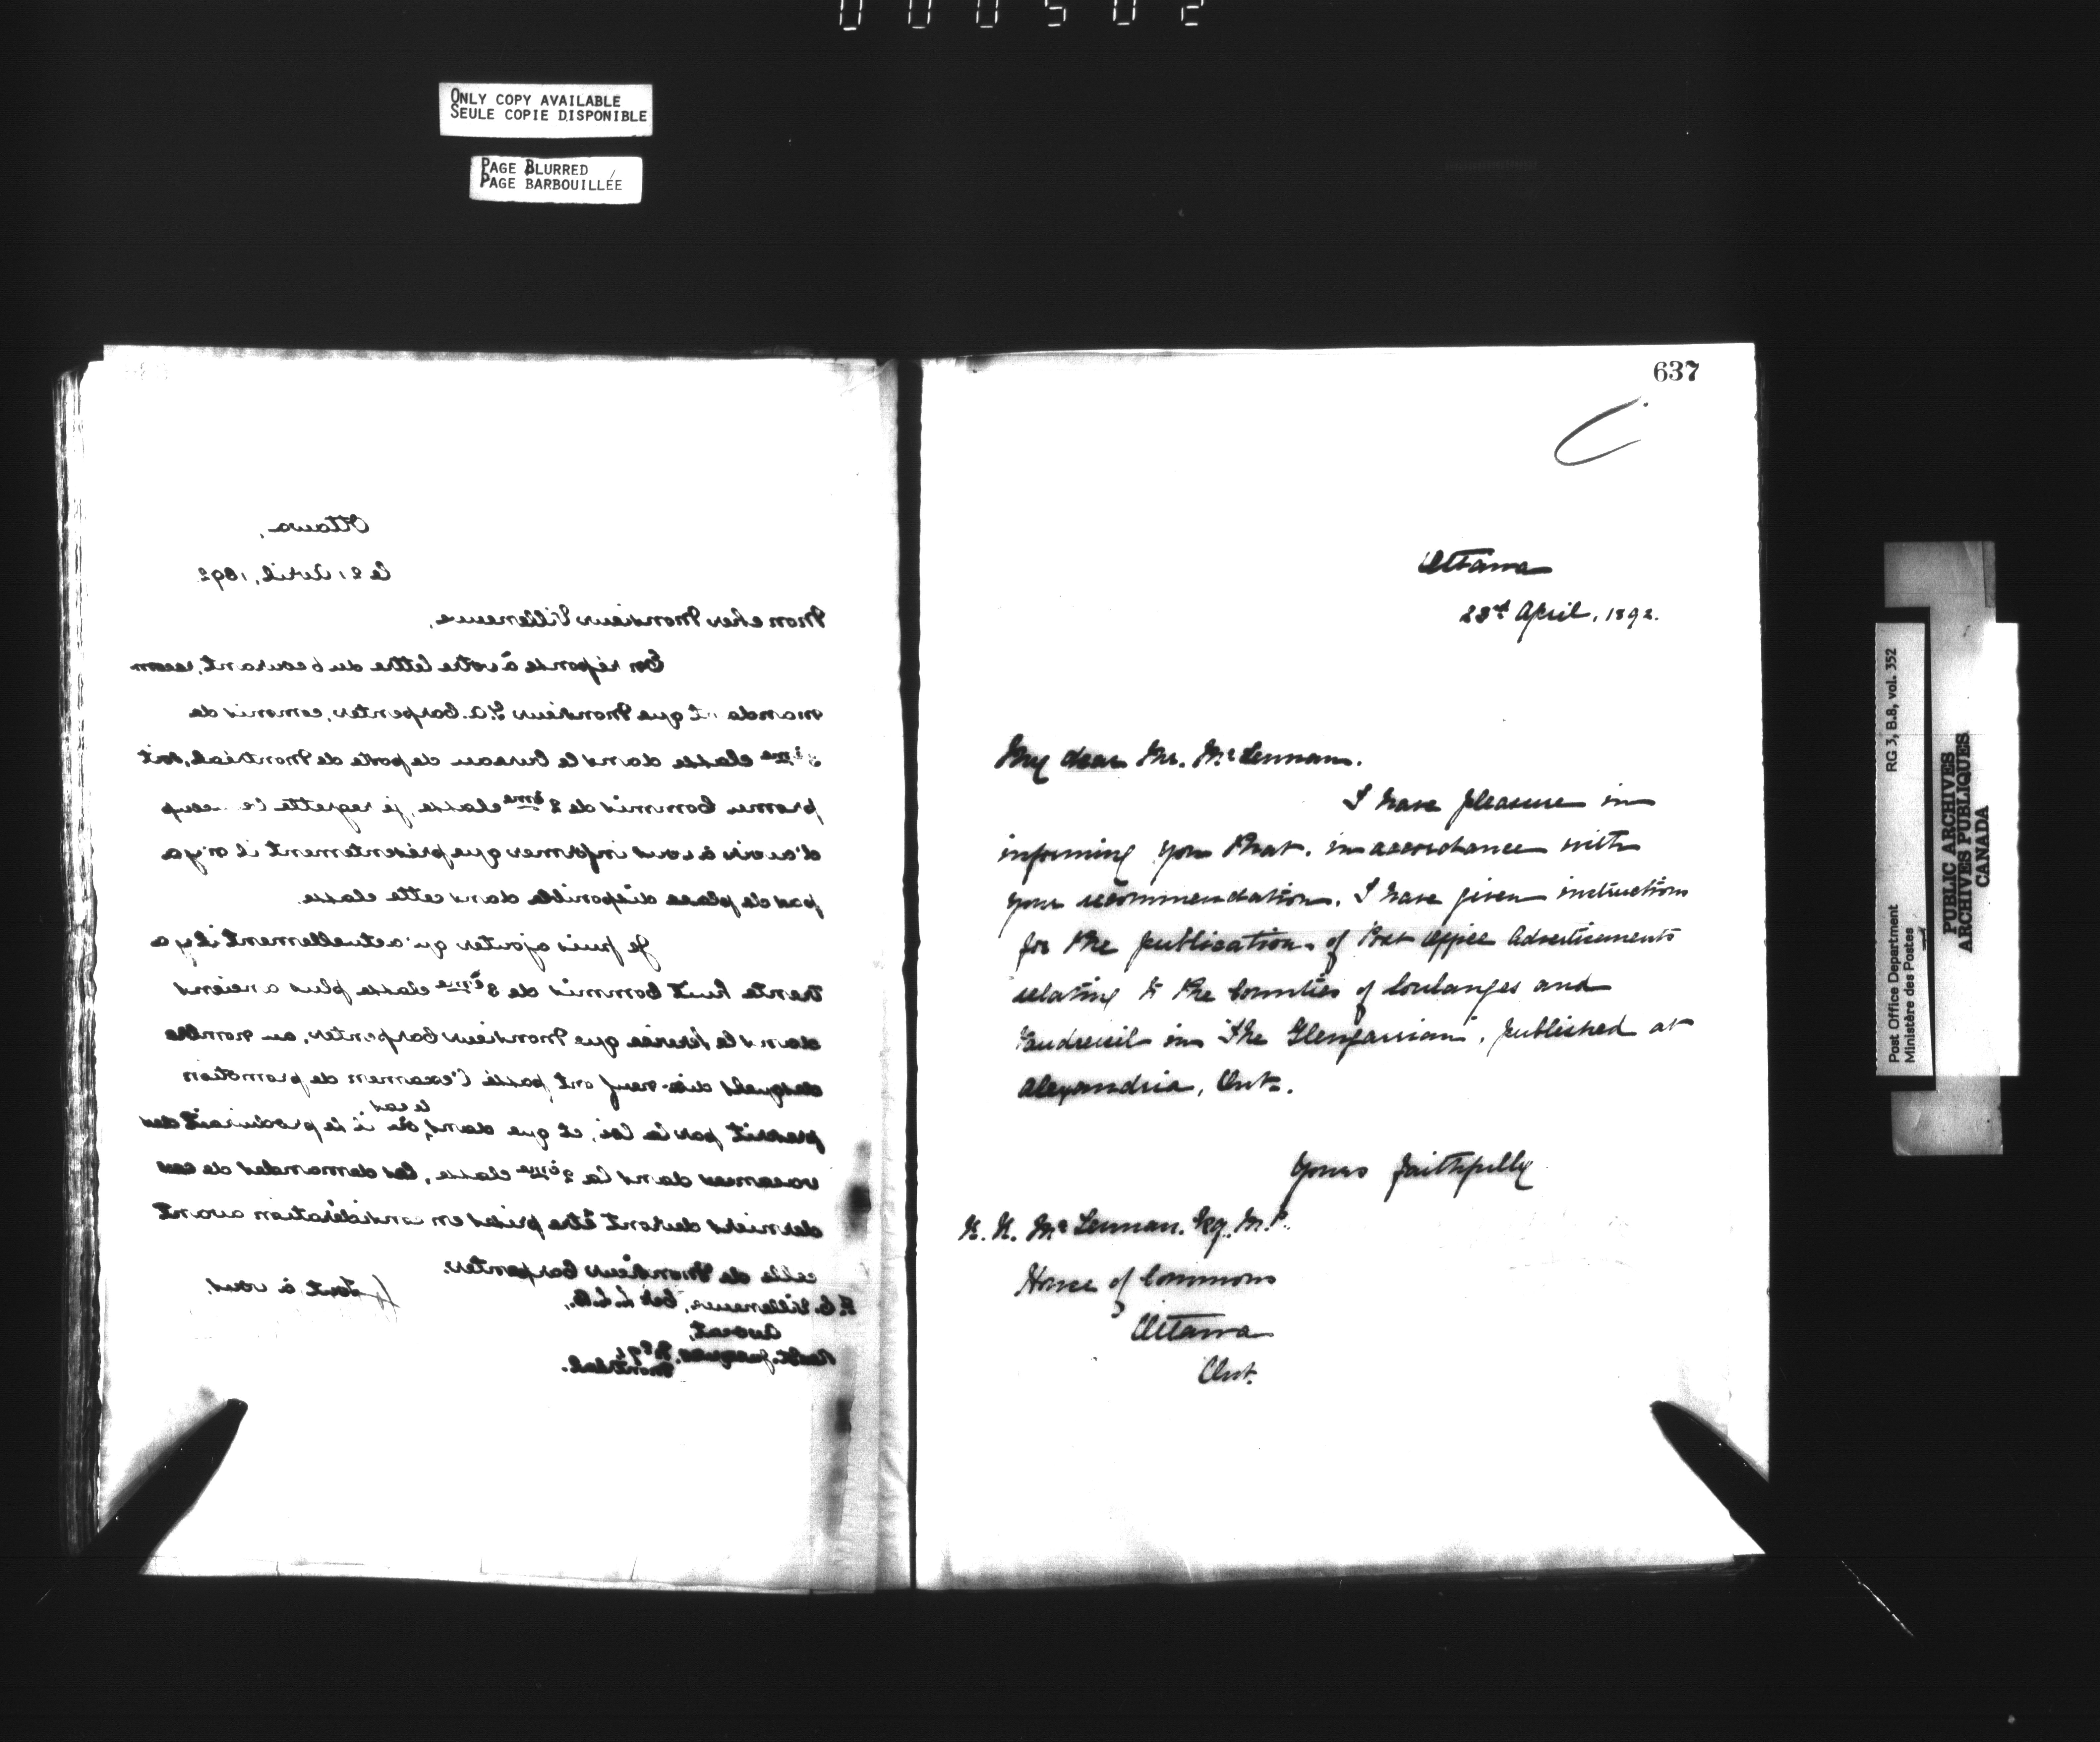 000502
ONLY COPY AVAILABLE
SEULE COPIE DISPONIBLE
PAGE BLURRED
PAGE BARBOUILLÉE
Ottawa,
le 21 Avril, 1892
Mon cher Monsieur Villeneuve,
En réponse à votre lettre du 6 courant, recom
mandant que Monsieur A. Carpenter, commis de
3ième classe dans le bureau de poste de Montréal, soit
promu Commis de 2ème classe, je regrette
d'avoir à vous informer que présentement il n'y a
pas de place disponible dans cette classe.
Je puis ajouter qu'actuellement il y a
trente huit Commis de 3ème classe plus anciens
dans le service que Monsieur Carpenter, au nombre
desquels dix-neuf ont passé l'examen de promotion
prescrit par la loi, et que dans le cas où il se produirait des
vacances dans la 2ème classe, les demandes de ces
derniers devront être prises en considération avant
celle de Monsieur Carpenter.
Tout à vous,
Villeneuve, L.L.B.,
Avocat,
Montréal.
637
Ottawa
23rd April, 1892.
My dear Mr. McLennan.
I have pleasure in
informing you that, in accordance with
your recommendation, I have given instructions
for the publication of Post Office Advertisements
relating to the Counties of Soulanges and
Vaudreuil in "The Glengarrian", published at
Alexandria, Ont.
Yours faithfully
R. R. McLennan, Esq. M.P.
House of Commons
Ottawa
Ont.
Post Office Department
Ministère des Postes
RG 3, B.8, vol. 352
PUBLIC ARCHIVES
ARCHIVES PUBLIQUES
CANADA